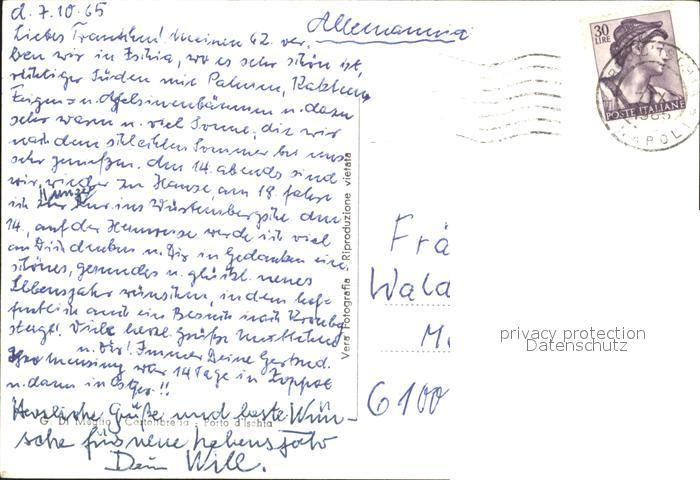 d. 7.10.65
Allemannia
Liebes Meinen 62. ver-
ben wir in Ischia, wo es sehr schön ist,
richtiger Süden mit Palmen, Kakteen
Feigen- u. Apfelsinenbäumen u. dazu
sehr warm u. viel Sonne, die wir
nach dem schlechten Sommer bei uns
sehr genießen. den 14. abends sind
wir wieder zu Hause, am 18. fahre
ich zur Kur ins Württembergische den
14., auf der Heimreise werde ich viel
an Dich denken u. Dir in Gedanken ein
schönes, gesundes u. glückl. neues
Lebensjahr wünschen, in dem hof-
fentlich auch ein Besuch nach
steigt! Viele herzl. Grüße
u. Dir! Immer Deine Gertrud.
war 14 Tage in Zoppot
u. dann in !!
Herzliche Grüße und beste Wün-
sche fürs neue Lebensjahr
Dein Will.
G. Di Meglio - Cartolibreria - Porto d'Ischia
Vera Fotografia - Riproduzione vietata
30
LIRE
POSTE ITALIANE
NAPOLI
Frä
Wald
M
6100
privacy protection
Datenschutz